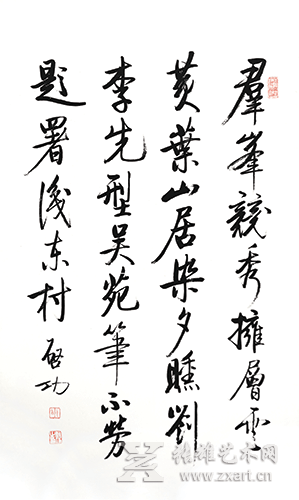 羣峯競秀擁層雲
黄葉山居染夕曛劉
李先型吴苑筆不勞
題署識東村
啓功
张雄艺术网
www.zxart.cn